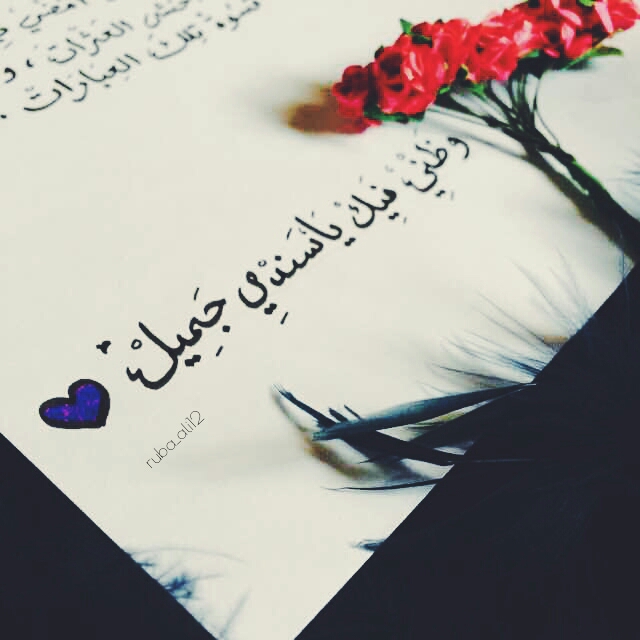 العثرات ، و
تلك العبارات .
وَظِنِّيْ فِيَكْ يَاسَنَدِيْ جَمِيلْ
ruba.ali12